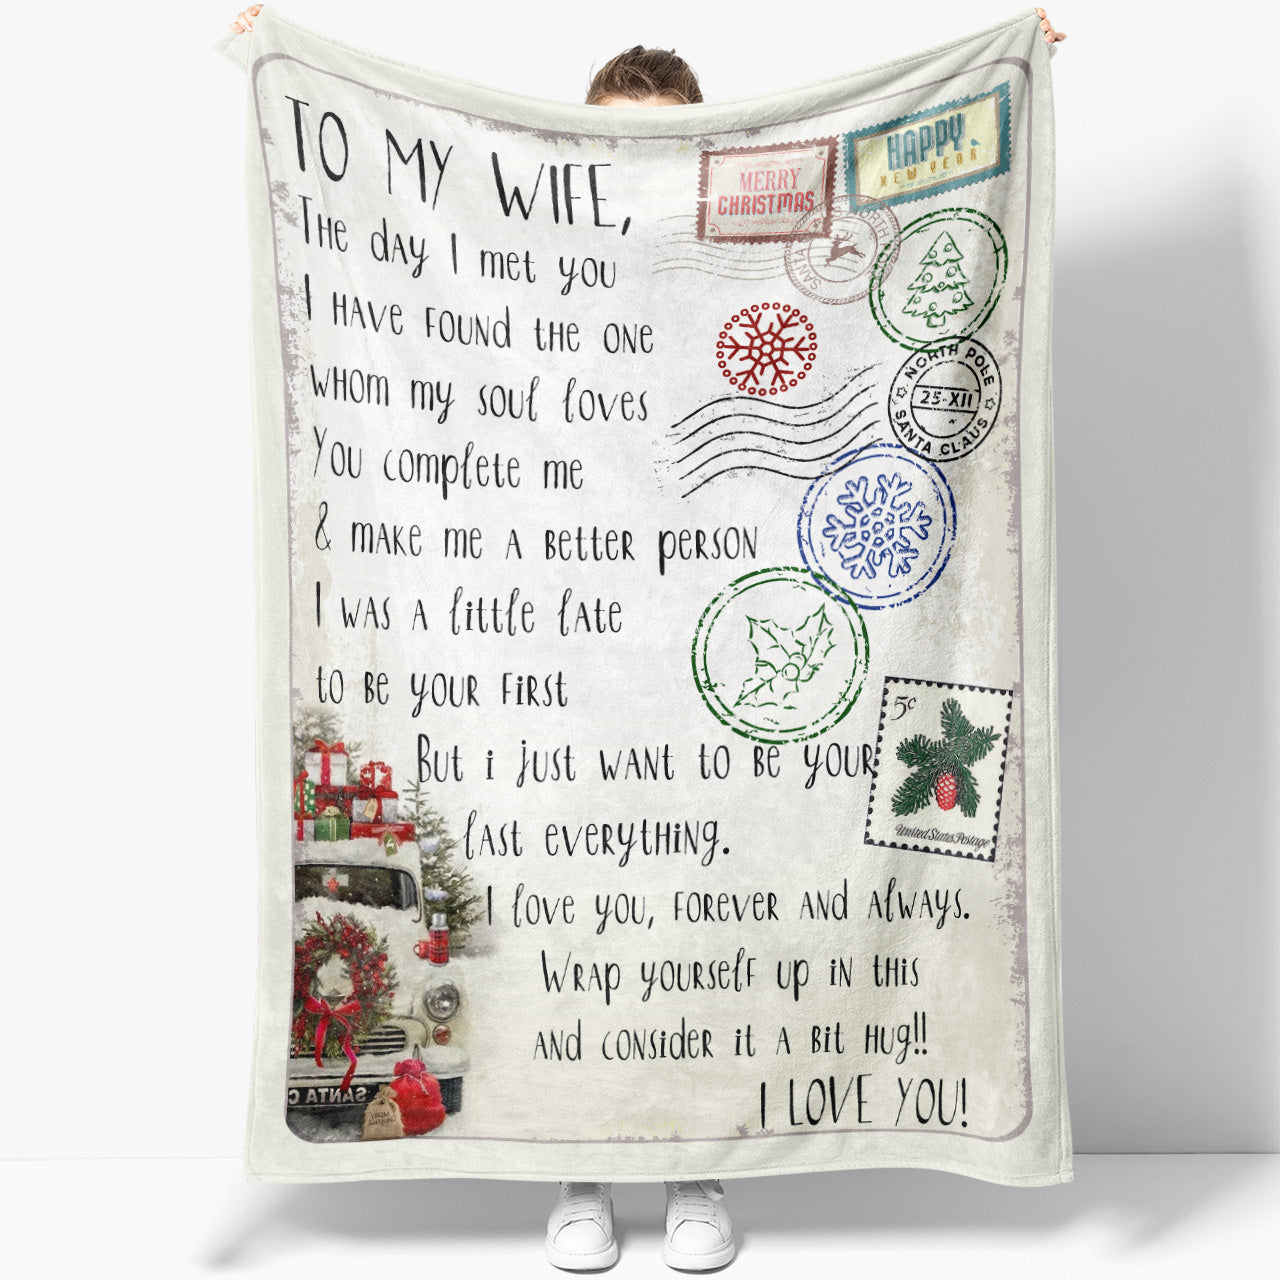 TO MY WIFE,
THE day I met you
I HAVE FOUND tHE ONE
WHOM my soul loves
You complete me
& MAKE ME A BETTER PERSON
I WAS A little late
to BE YOUR FIRST
But i just WANT to BE YOUR
last EVERYTHING.
I love you, FOREVER AND Always.
WRAP yourself up iN tHis
AND CONSider it A Bit HUG!!
I LOVE YOU!
MERRY
CHRISTMAS
HAPPY
NEW YEAR
NORTH POLE
25-XII
SANTA CLAUS
5c
United States Postage
SANTA C